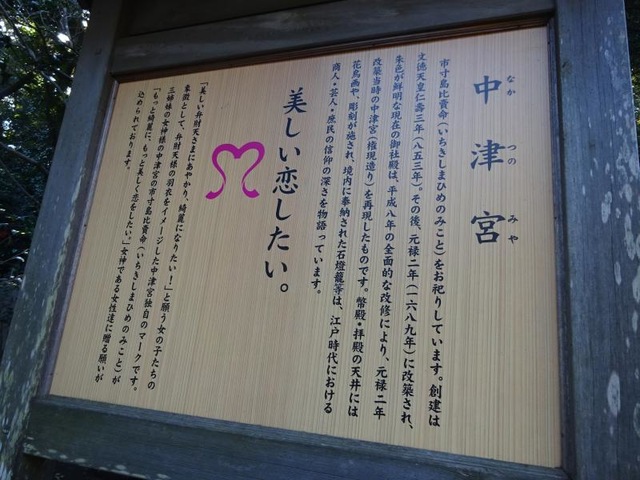 中津宮
なか
つの
みや
市寸島比賣命(いちきしまひめのみこと)をお祀りしています。創建は
文徳天皇仁壽三年(八五三年)。その後、元禄二年(一六八九年)に改築され、
朱色が鮮明な現在の御社殿は、平成八年の全面的な改修により、元禄二年
改築当時の中津宮(権現造り)を再現したものです。幣殿・拝殿の天井には
花鳥画や、彫刻が施され、境内に奉納された石燈籠等は、江戸時代における
商人・芸人・庶民の信仰の深さを物語っています。
美しい恋したい。
「美しい弁財天さまにあやかり、綺麗になりたい!」と願う女の子たちの
象徴として、弁財天様の羽衣をイメージした中津宮独自のマークです。
三姉妹の女神様の中津宮の市寸島比賣命(いちきしまひめのみこと)が
「もっと綺麗に、もっと美しく恋をしたい。」女神である女性達に贈る願いが
込められております。